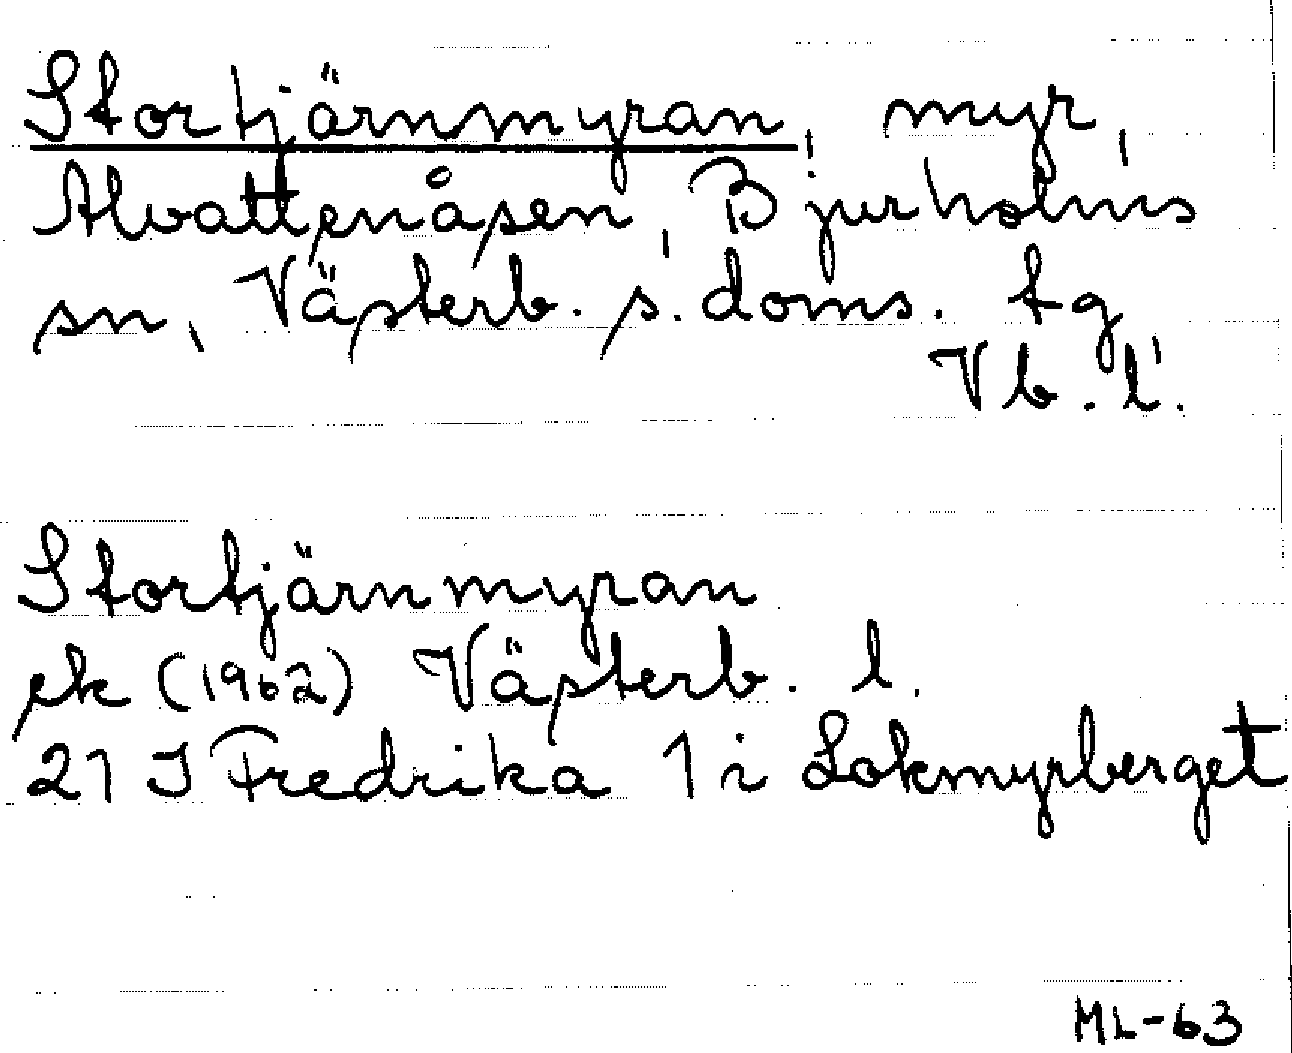 Stortjärnmyran, myr,
Alvattenåsen, Bjurholms
sn, Västerb. s. doms. tg
Vb. l.
Stortjärnmyran
ek (1962) Västerb. l.
21 J Fredrika 1 i Lokmyrberget
ML-63